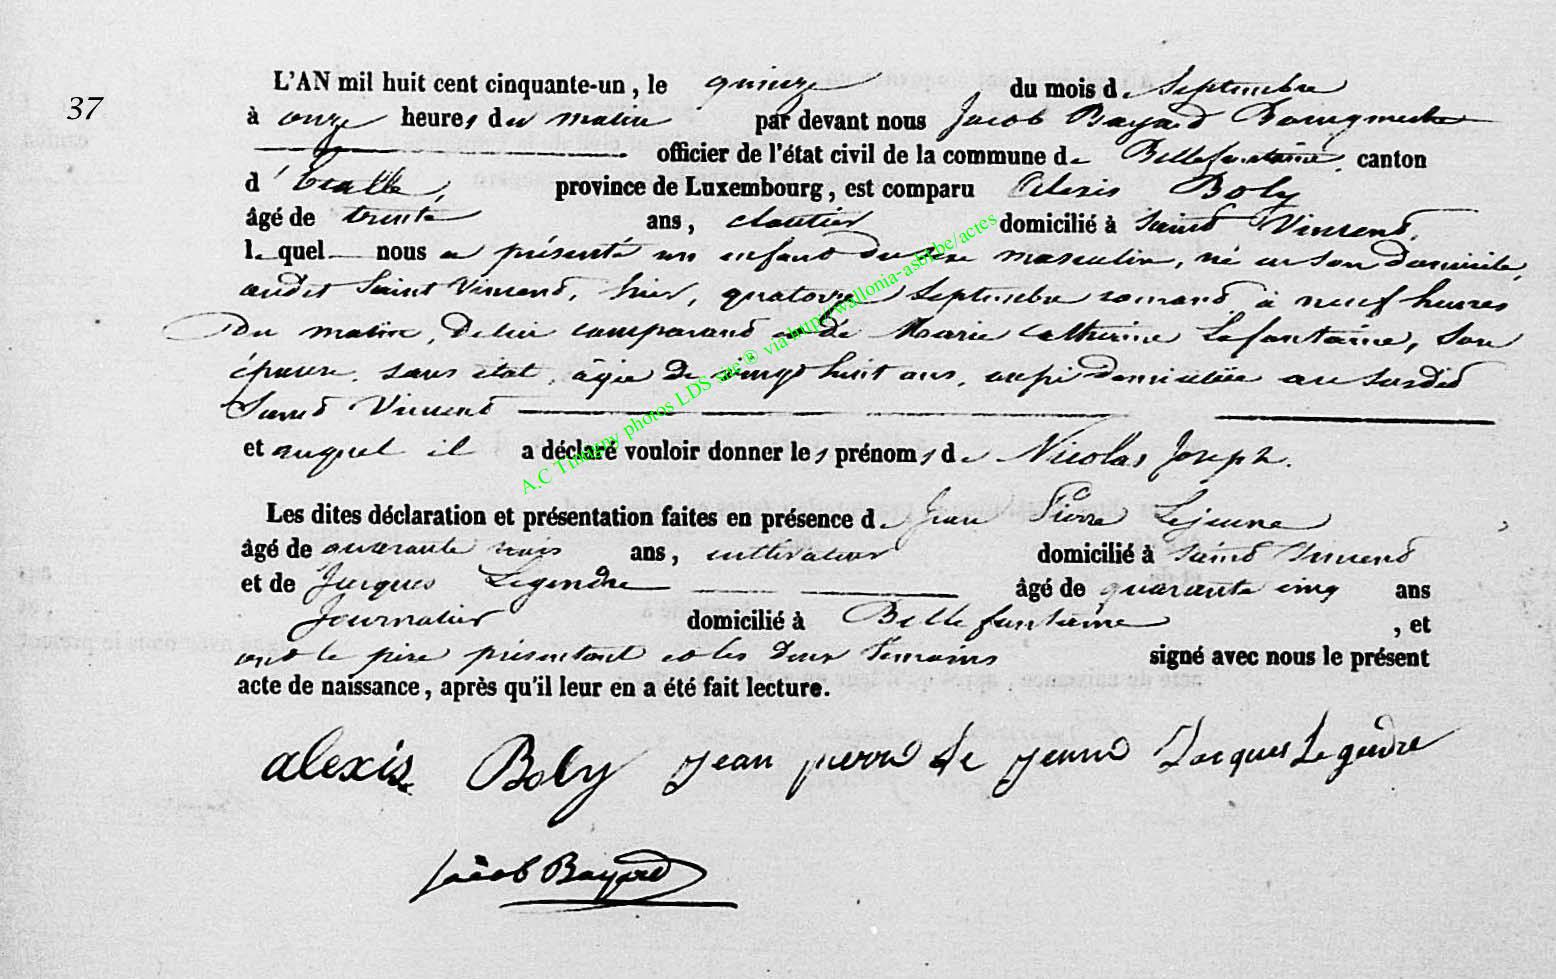 37
L'AN mil huit cent cinquante-un, le quinze du mois de Septembre
à onze heures du matin par devant nous Jacob Bayard Bourgmestre
officier de l'état civil de la commune de Bellefontaine, canton
d'Etalle, province de Luxembourg, est comparu Alexis Boly
âgé de trente ans, cloutier domicilié à Saint Vincent,
lequel nous a présenté un enfant du sexe masculin, né en son domicile,
audit Saint Vincent, hier, quatorze Septembre courant, à neuf heures
du matin, de lui comparant et de Marie Catherine Lafontaine, son
épouse, sans état, âgée de vingt huit ans, aussi domiciliée au susdit
Saint Vincent
et auquel il a déclaré vouloir donner les prénoms de Nicolas Joseph.
Les dites déclaration et présentation faites en présence de Jean Pierre Lejeune
âgé de quarante trois ans, cultivateur domicilié à Saint Vincent
et de Jacques Legendre âgé de quarante cinq ans
Journalier domicilié à Bellefontaine, et
ont le père présentant et les deux témoins signé avec nous le présent
acte de naissance, après qu'il leur en a été fait lecture.
alexis Boly jean pierre le jeune Jacques Legendre
Jacob Bayard
A.C Tintigny photos LDS site® via http://wallonia-asbl.be/actes